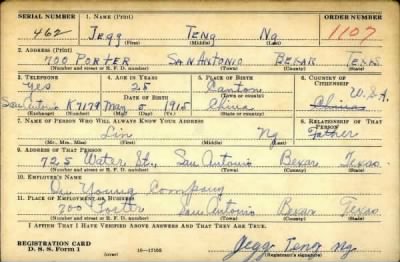 SERIAL NUMBER 1. NAME (Print) ORDER NUMBER
462 Jegg Teng Ng 1107
(First) (Middle) (Last)
2. ADDRESS (Print)
700 PORTER SAN ANTONIO BEXAR TEXAS
(Number and street or R. F. D. number) (Town) (County) (State)
3. TELEPHONE 4. AGE IN YEARS 5. PLACE OF BIRTH 6. COUNTRY OF CITIZENSHIP
Yes 25 Canton U.S.A.
DATE OF BIRTH (Town or county) China
San Antonio K7179 May 5 1915 China
(Exchange) (Number) (Mo.) (Day) (Yr.) (State or country)
7. NAME OF PERSON WHO WILL ALWAYS KNOW YOUR ADDRESS 8. RELATIONSHIP OF THAT PERSON
Lin Ng Father
(Mr., Mrs., Miss) (First) (Middle) (Last)
9. ADDRESS OF THAT PERSON
725 Water St., San Antonio Bexar Texas
(Number and street or R. F. D. number) (Town) (County) (State)
10. EMPLOYER'S NAME
Young Company
11. PLACE OF EMPLOYMENT OR BUSINESS
700 Porter San Antonio Bexar Texas
(Number and street or R. F. D. number) (Town) (County) (State)
I AFFIRM THAT I HAVE VERIFIED ABOVE ANSWERS AND THAT THEY ARE TRUE.
REGISTRATION CARD
D. S. S. Form 1 (over) 16—17105
Jegg Teng Ng
(Registrant's signature)